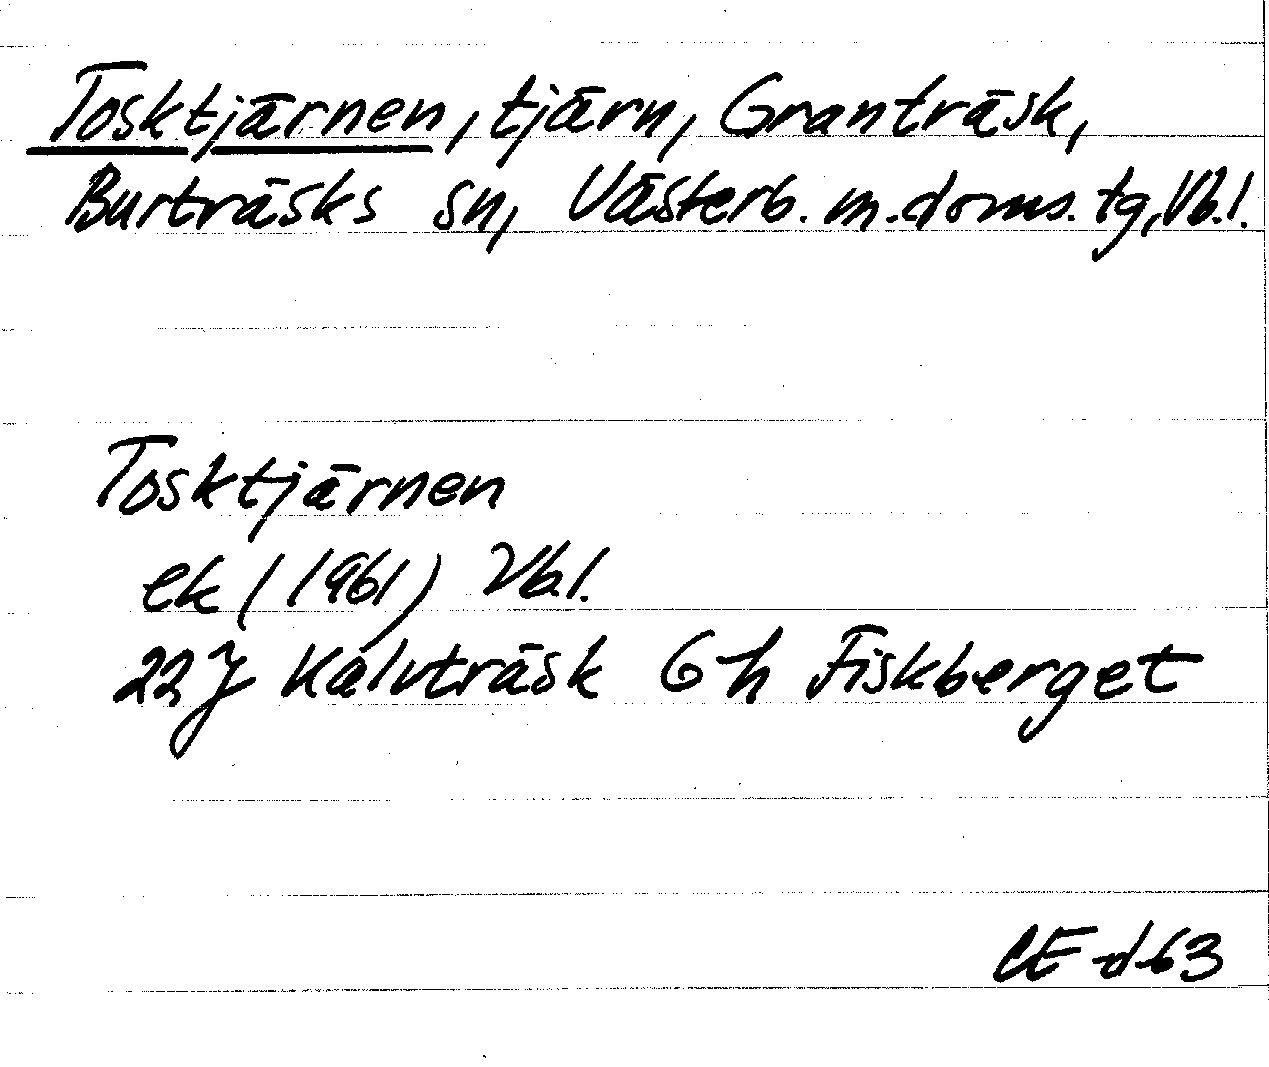 Tosktjärnen, tjärn, Granträsk,
Burträsks sn, Västerb. m. doms. tg, Vb.l.
Tosktjärnen
ek (1961) Vb.l.
22J Kalvträsk 6h Fiskberget
CE -d-63